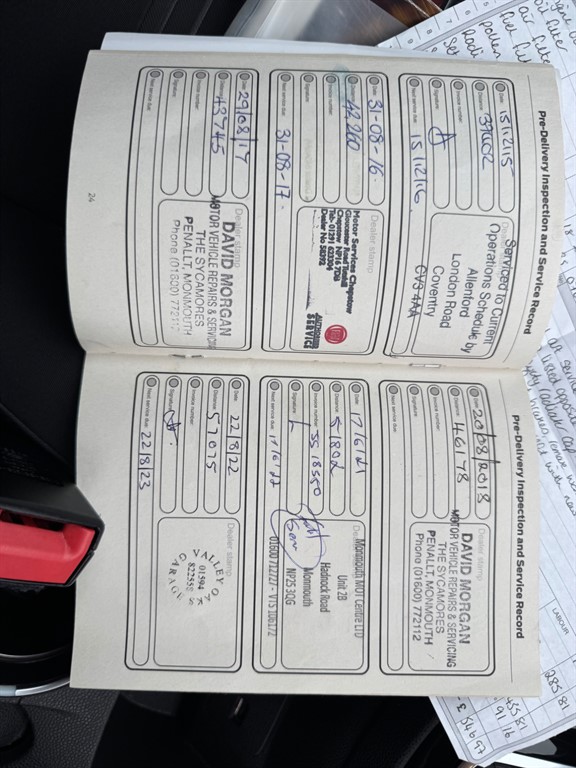 Pre-Delivery Inspection and Service Record
Date: 15/12/15
Distance: 39602
Invoice number:
Signature:
Next service due: 15/12/16
Dealer stamp
Serviced to Current
Operations Schedule by
Allenford
London Road
Coventry
CV3 4AA
Date: 31-08-16
Distance: 42200
Invoice number:
Signature:
Next service due: 31-08-17
Dealer stamp
Motor Services Chepstow
Gloucester Road Tutshill
Chepstow NP16 7DB
Tel: 01291 623304
Dealer No 58392
AUTHORISED
SERVICE
Date: 29/08/17
Distance: 43745
Invoice number:
Signature:
Next service due:
Dealer stamp
DAVID MORGAN
MOTOR VEHICLE REPAIRS & SERVICING
THE SYCAMORES
PENALLT, MONMOUTH
Phone (01600) 772112
24
Pre-Delivery Inspection and Service Record
Date: 20/08/2018
Distance: 46178
Invoice number:
Signature:
Next service due:
Dealer stamp
DAVID MORGAN
MOTOR VEHICLE REPAIRS & SERVICING
THE SYCAMORES
PENALLT, MONMOUTH
Phone (01600) 772112
Date: 17/6/21
Distance: 51802
Invoice number: SS18550
Signature:
Next service due: 17/6/22
Dealer stamp
Monmouth MOT Centre LTD
Unit 2B
Hadnock Road
Monmouth
NP25 3QG
01600 712727 - VTS 106172
Date: 22/8/22
Distance: 57075
Invoice number:
Signature:
Next service due: 22/8/23
Dealer stamp
VALLEY
01594
822558
GARAGE
air filter
fuel filter
pollen
LABOUR
285 81
91 16
546 97